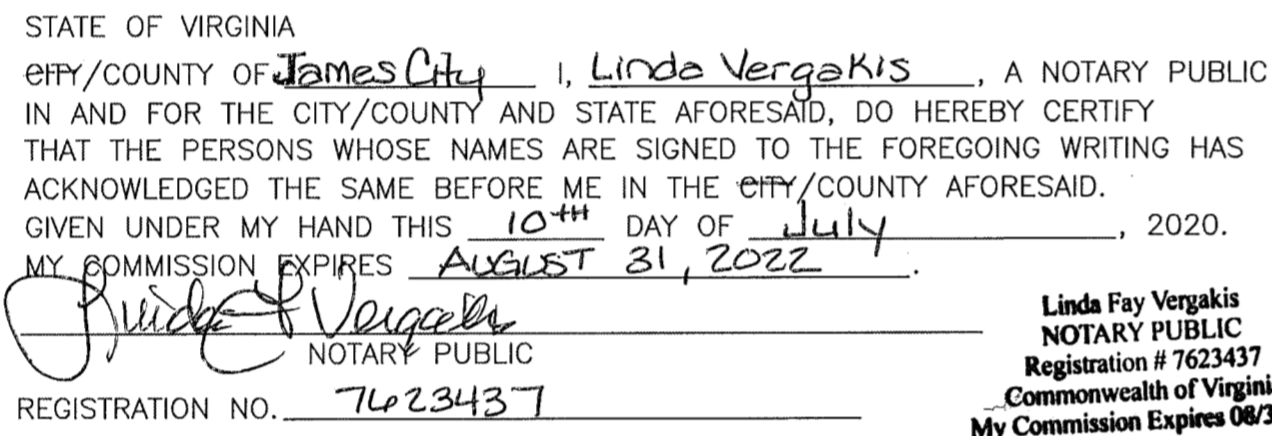 STATE OF VIRGINIA
CITY/COUNTY OF James City I, Linda Vergakis, A NOTARY PUBLIC
IN AND FOR THE CITY/COUNTY AND STATE AFORESAID, DO HEREBY CERTIFY
THAT THE PERSONS WHOSE NAMES ARE SIGNED TO THE FOREGOING WRITING HAS
ACKNOWLEDGED THE SAME BEFORE ME IN THE CITY/COUNTY AFORESAID.
GIVEN UNDER MY HAND THIS 10TH DAY OF July, 2020.
MY COMMISSION EXPIRES AUGUST 31, 2022.
Linda F Vergakis
NOTARY PUBLIC
REGISTRATION NO. 7623437
Linda Fay Vergakis
NOTARY PUBLIC
Registration # 7623437
Commonwealth of Virgini
My Commission Expires 08/3